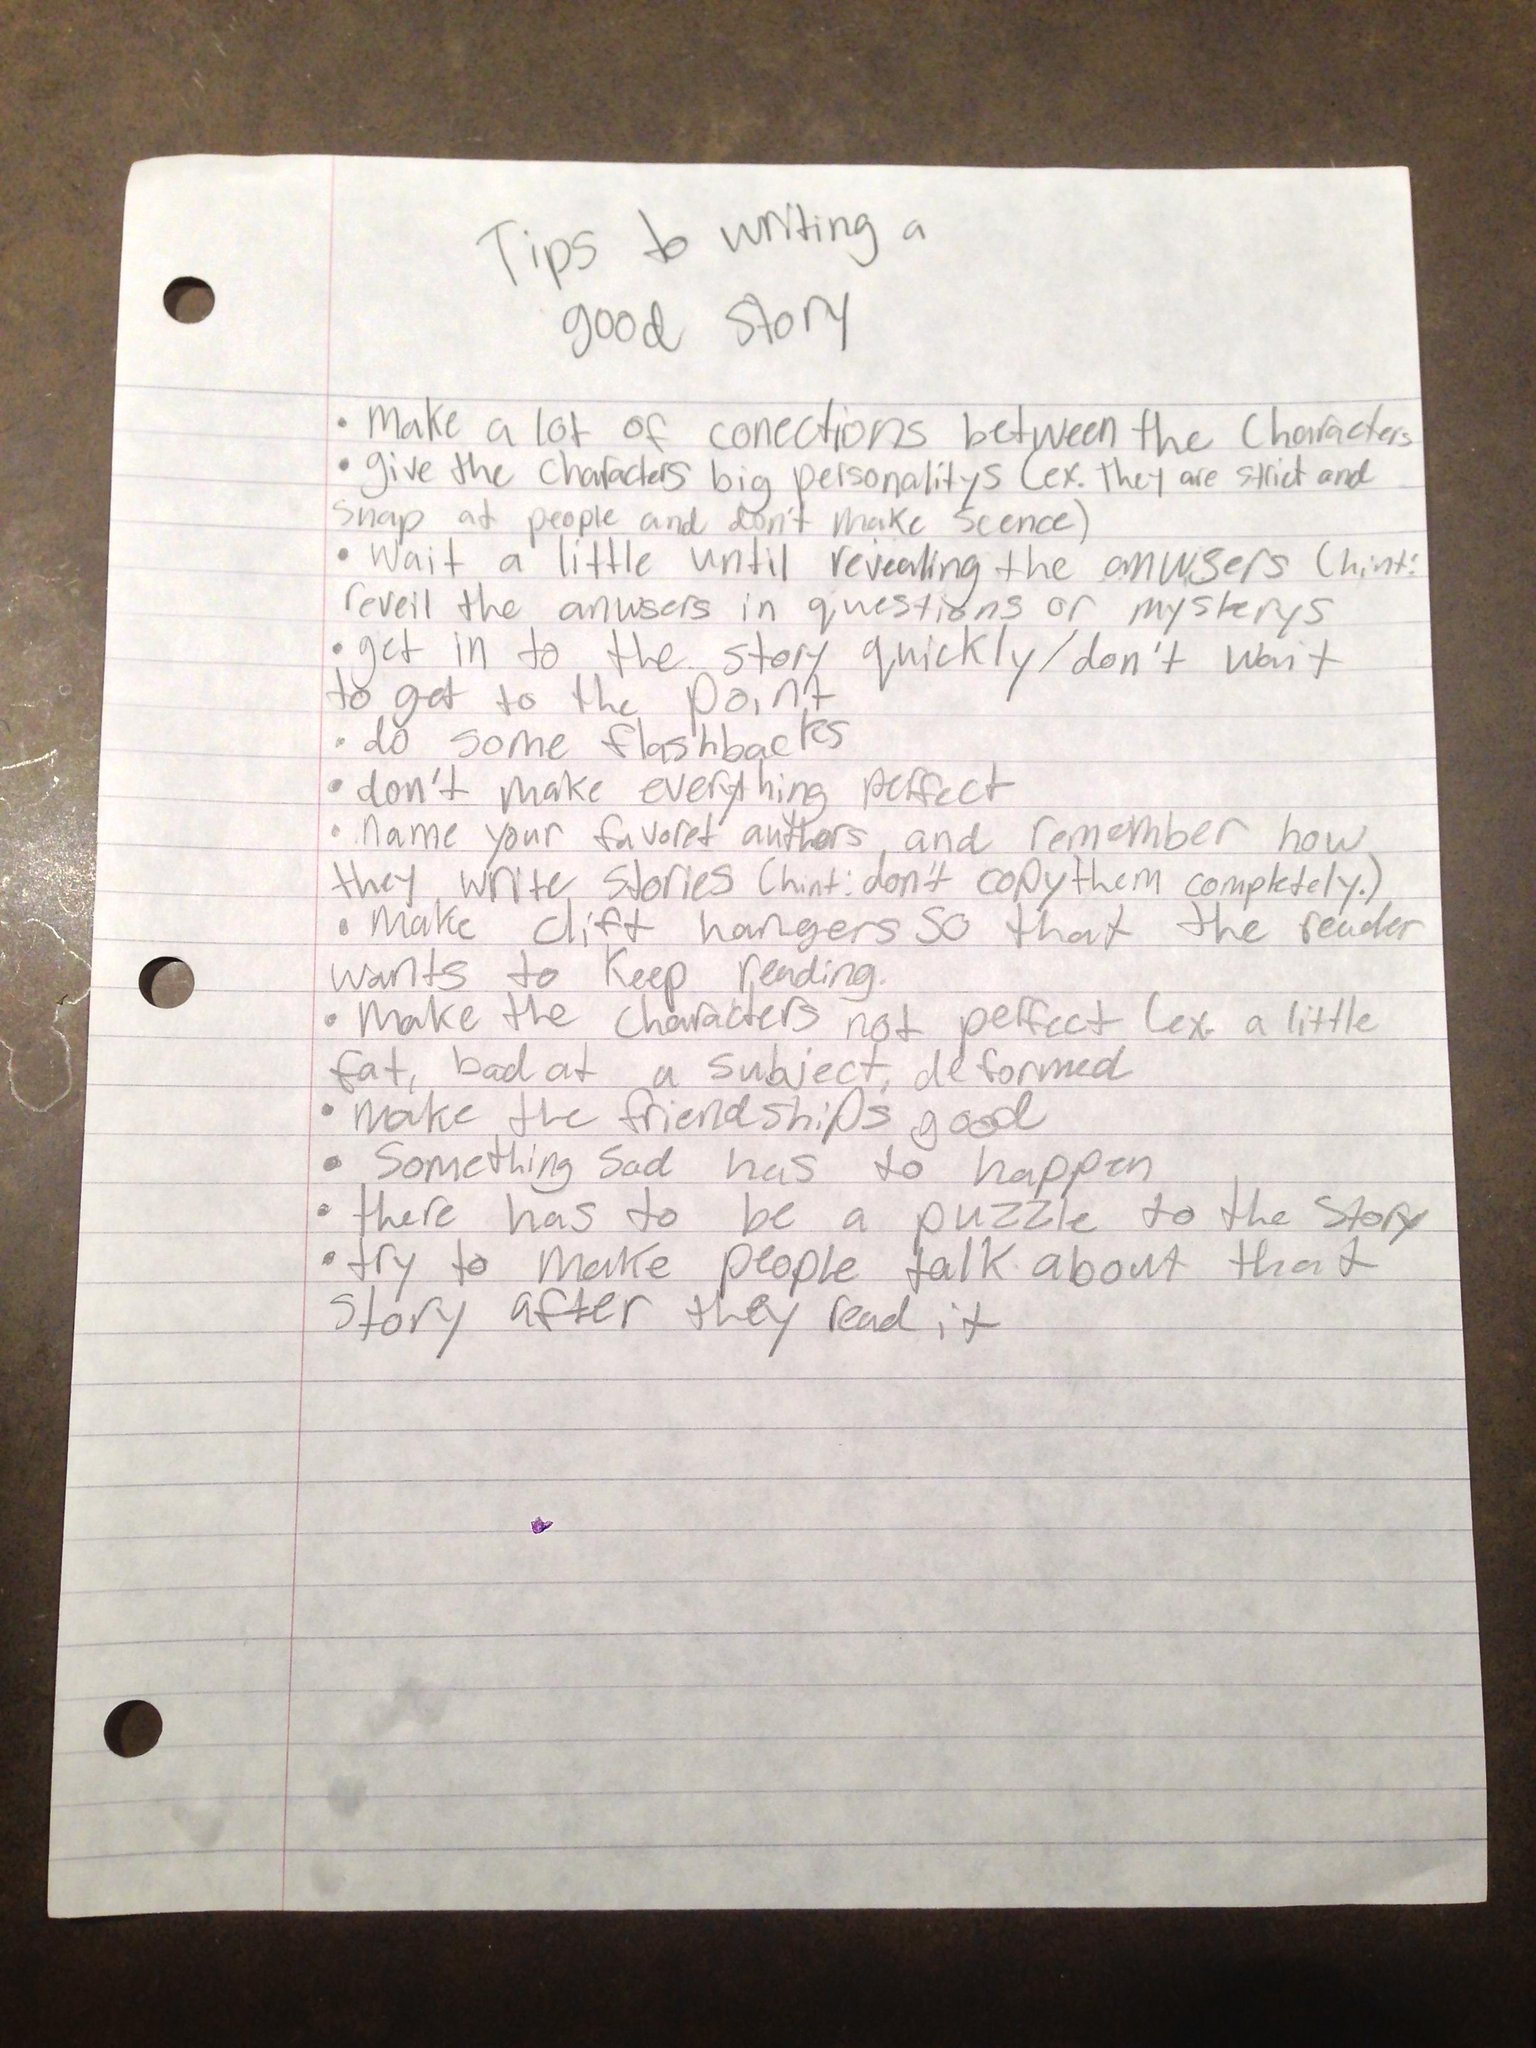 Tips to writing a
good story
• Make a lot of conections between the characters
• give the characters big personalitys (ex. they are strict and
snap at people and don't make scence)
• Wait a little until revealing the anwsers (hint:
reveil the anwsers in questions or mysterys
• get in to the story quickly/don't wait
to get to the point
• do some flashbacks
• don't make everything perfect
• name your favoret authors and remember how
they write stories (hint: don't copy them completely.)
• Make clift hangers so that the reader
wants to keep reading.
• Make the characters not perfect (ex. a little
fat, bad at a subject, deformed
• make the friendships good
• Something sad has to happen
• there has to be a puzzle to the story
• try to make people talk about that
story after they read it